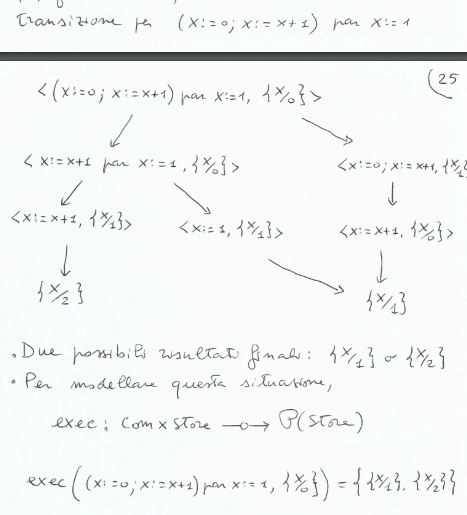 transizione per (x:=0; x:=x+1) par x:=1
(25
<(x:=0; x:=x+1) par x:=1, {x/0}>
<x:=x+1 par x:=1, {x/0}> <x:=0; x:=x+1, {x/1}
<x:=x+1, {x/1}> <x:=1, {x/1}> <x:=x+1, {x/0}>
{x/2} {x/1}
• Due possibili risultati finali: {x/1} o {x/2}
• Per modellare questa situazione,
exec: Com x Store —o→ P(Store)
exec((x:=0; x:=x+1) par x:=1, {x/0}) = {{x/1}, {x/2}}